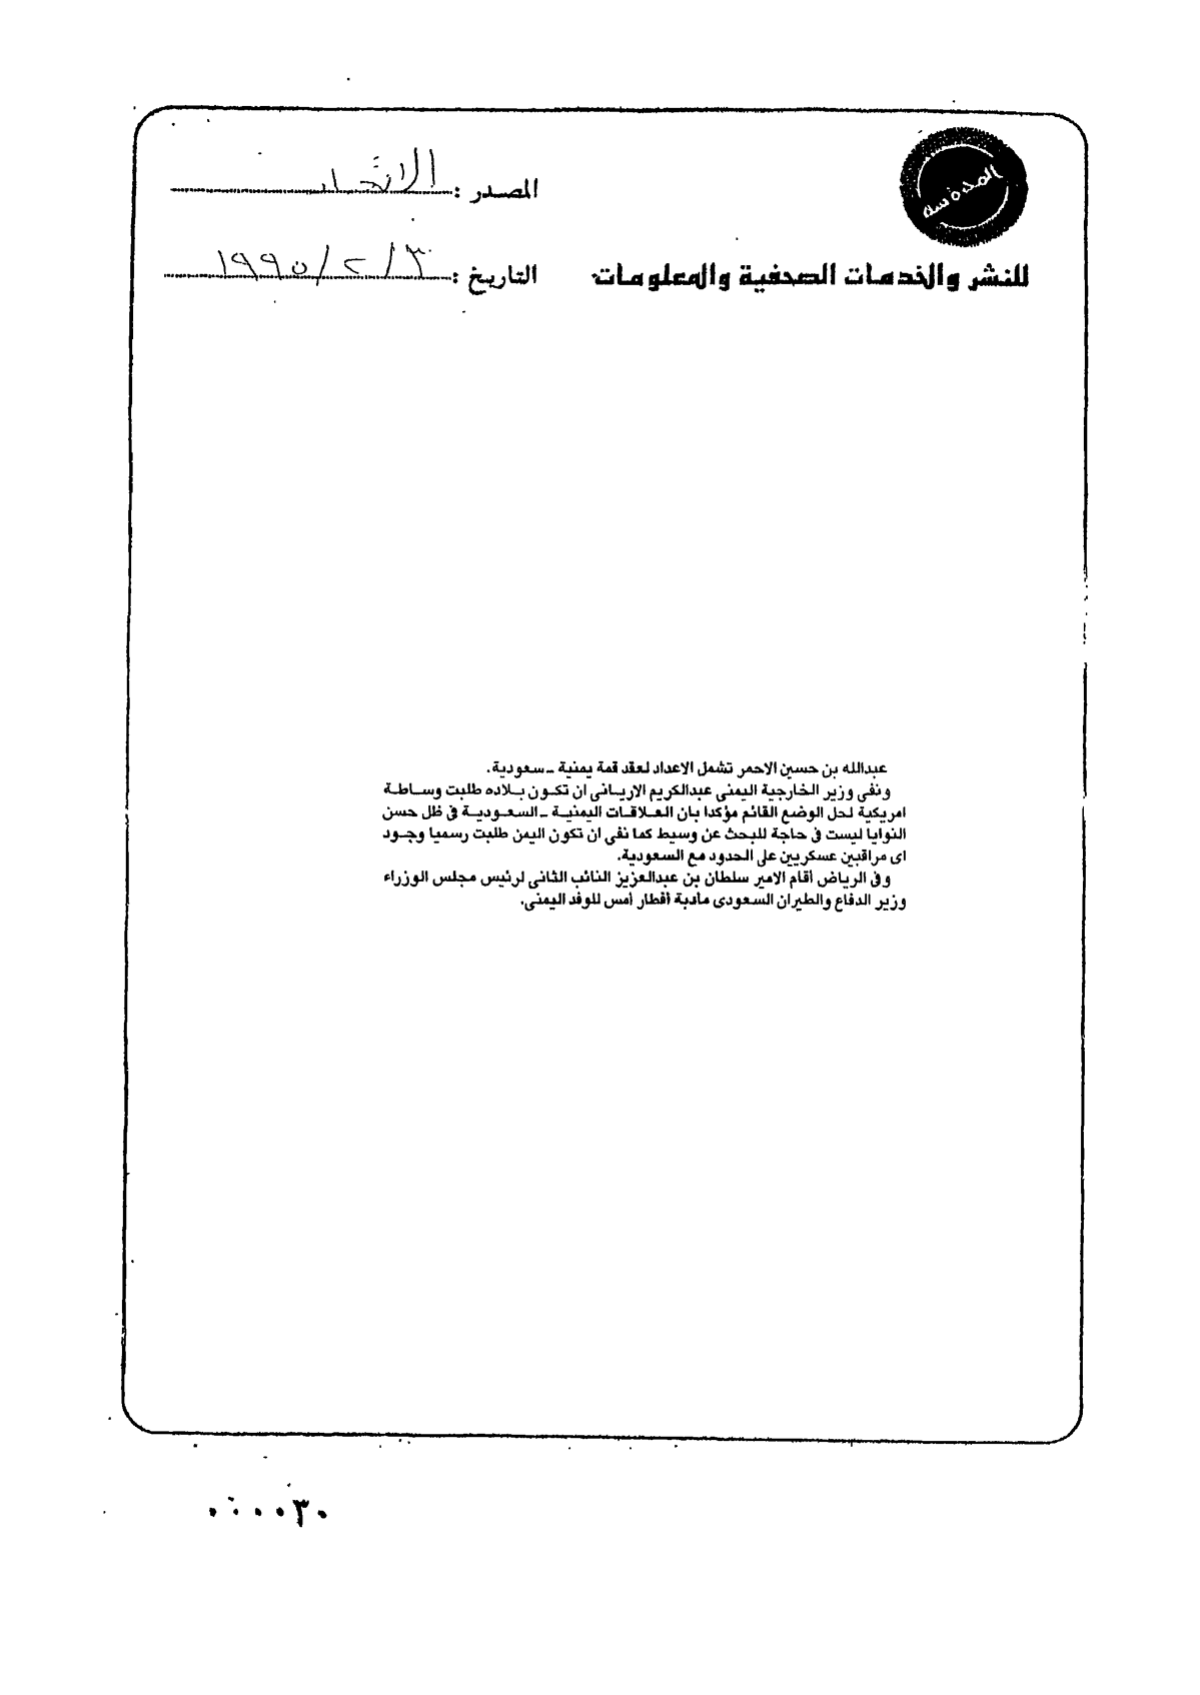 المدرسة
المصدر : الاتحاد
للنشر والخدمات الصحفية والمعلومات
التاريخ : ٣ / ٢ / ١٩٩٥
عبدالله بن حسين الاحمر تشمل الاعداد لعقد قمة يمنية ــ سعودية.
ونفى وزير الخارجية اليمنى عبدالكريم الاريانى ان تكون بلاده طلبت وساطة
امريكية لحل الوضع القائم مؤكدا بان العلاقات اليمنية ــ السعودية فى ظل حسن
النوايا ليست فى حاجة للبحث عن وسيط كما نفى ان تكون اليمن طلبت رسميا وجود
اى مراقبين عسكريين على الحدود مع السعودية.
وفى الرياض أقام الامير سلطان بن عبدالعزيز النائب الثانى لرئيس مجلس الوزراء
وزير الدفاع والطيران السعودى مادبة أفطار أمس للوفد اليمنى.